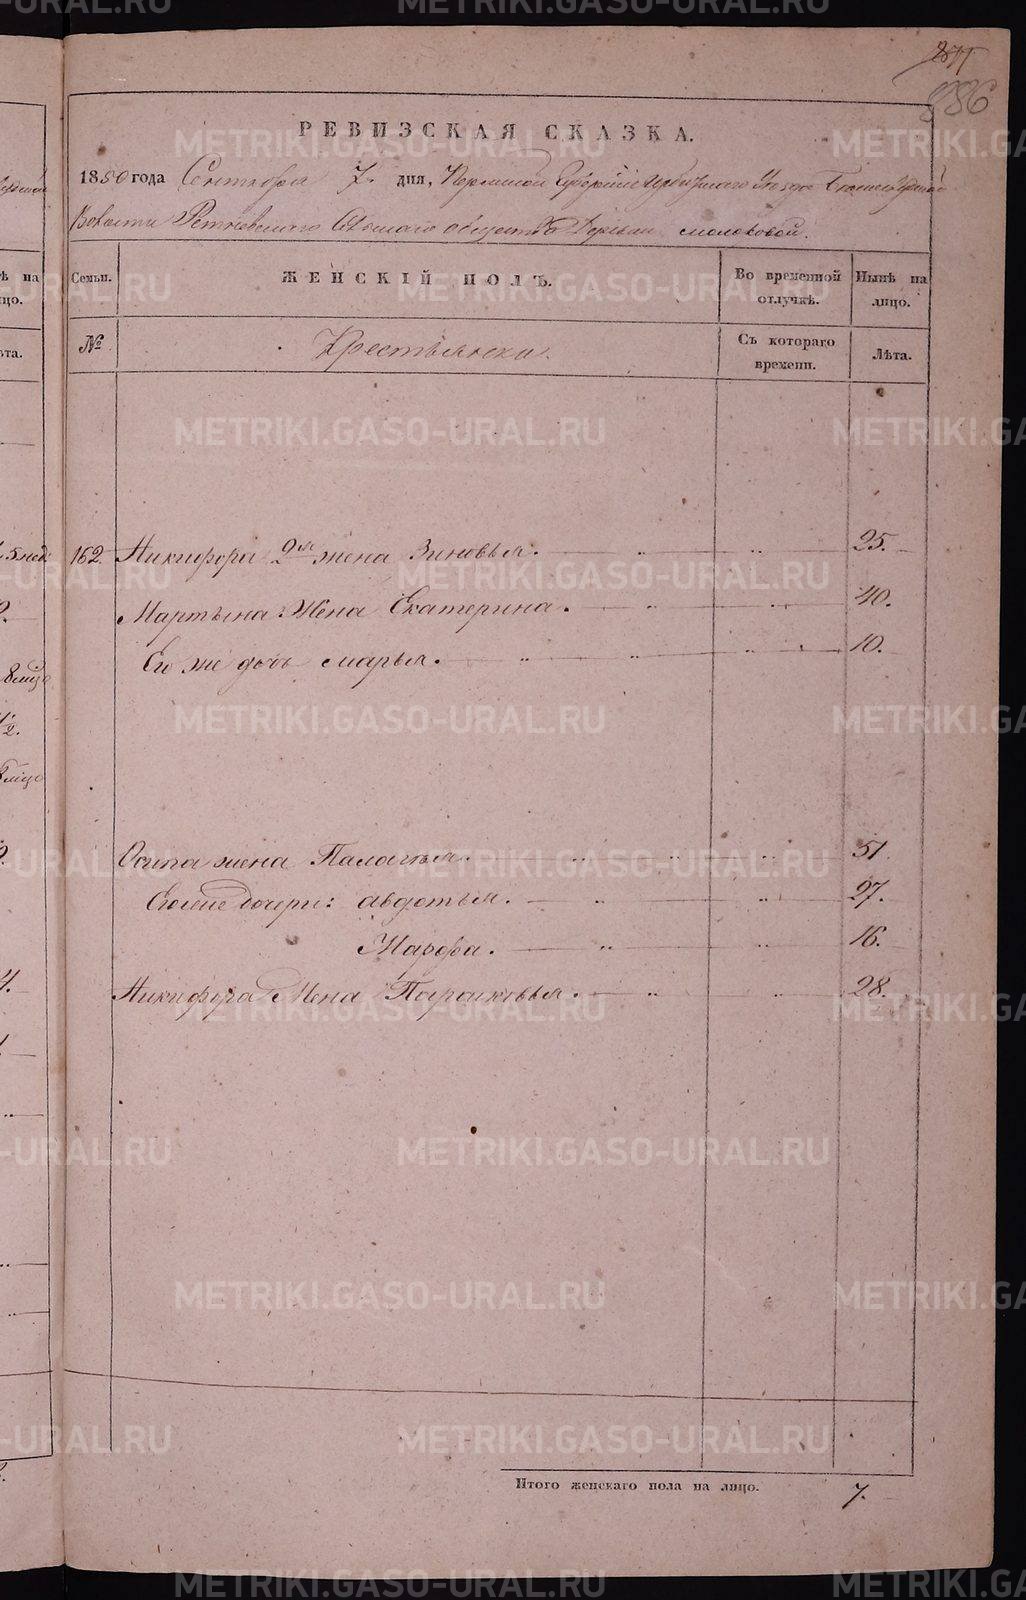 METRIKI.GASO-URAL.RU
871
886
РЕВИЗСКАЯ СКАЗКА.
1850 года Сентября 7. дня, Пермской Губернiи Ирбитскаго Уезда
Волости Ретневскаго Сельскаго общества Деревни молоковой.
Семьи.
ЖЕНСКІЙ ПОЛЪ.
Во временной отлучкѣ.
Нынѣ на лицо.
№
Крестьянски.
Съ котораго времени.
Лѣта.
162. Никифора 2я жена Зиновья. 25.
Мартына Жена Екатерина. 40.
Его же дочь марья. 10.
Осипа жена Палагья. 51.
дочери: авдотья. 27.
Марфа. 16.
Никифора Жена Парасковья. 28.
Итого женскаго пола на лицо. 7.